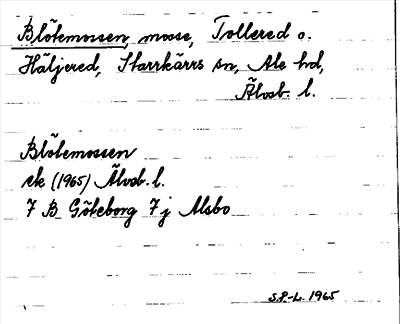 Blötemossen, mosse, Tollered o.
Häljered, Starrkärrs sn, Ale hd,
Älvsb. l.
Blötemossen
ek (1965) Älvsb. l.
7 B Göteborg 7 j Alsbo
S.P-L. 1965